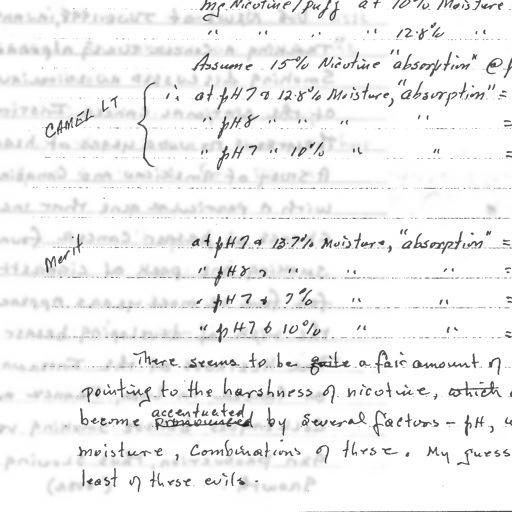 mg Nicotine/puff at 10% Moisture
" " " " 12.8% "
Assume 15% Nicotine "absorption" @ p
CAMEL LT
i. at pH7 & 12.8% Moisture, "absorption" =
" pH8 " " " " =
" pH7 " 10% " " =
Merit
at pH7 & 13.7% Moisture, "absorption" =
" pH8 " " " " =
" pH7 & 9% " " =
" pH7 & 10% " " =
There seems to be quite a fair amount of
pointing to the harshness of nicotine, which
accentuated
become pronounced by several factors - pH,
moisture, combinations of these. My guess
least of these evils.